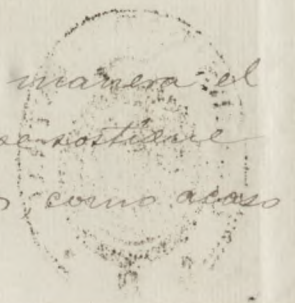 manera el
se sostiene
como acaso